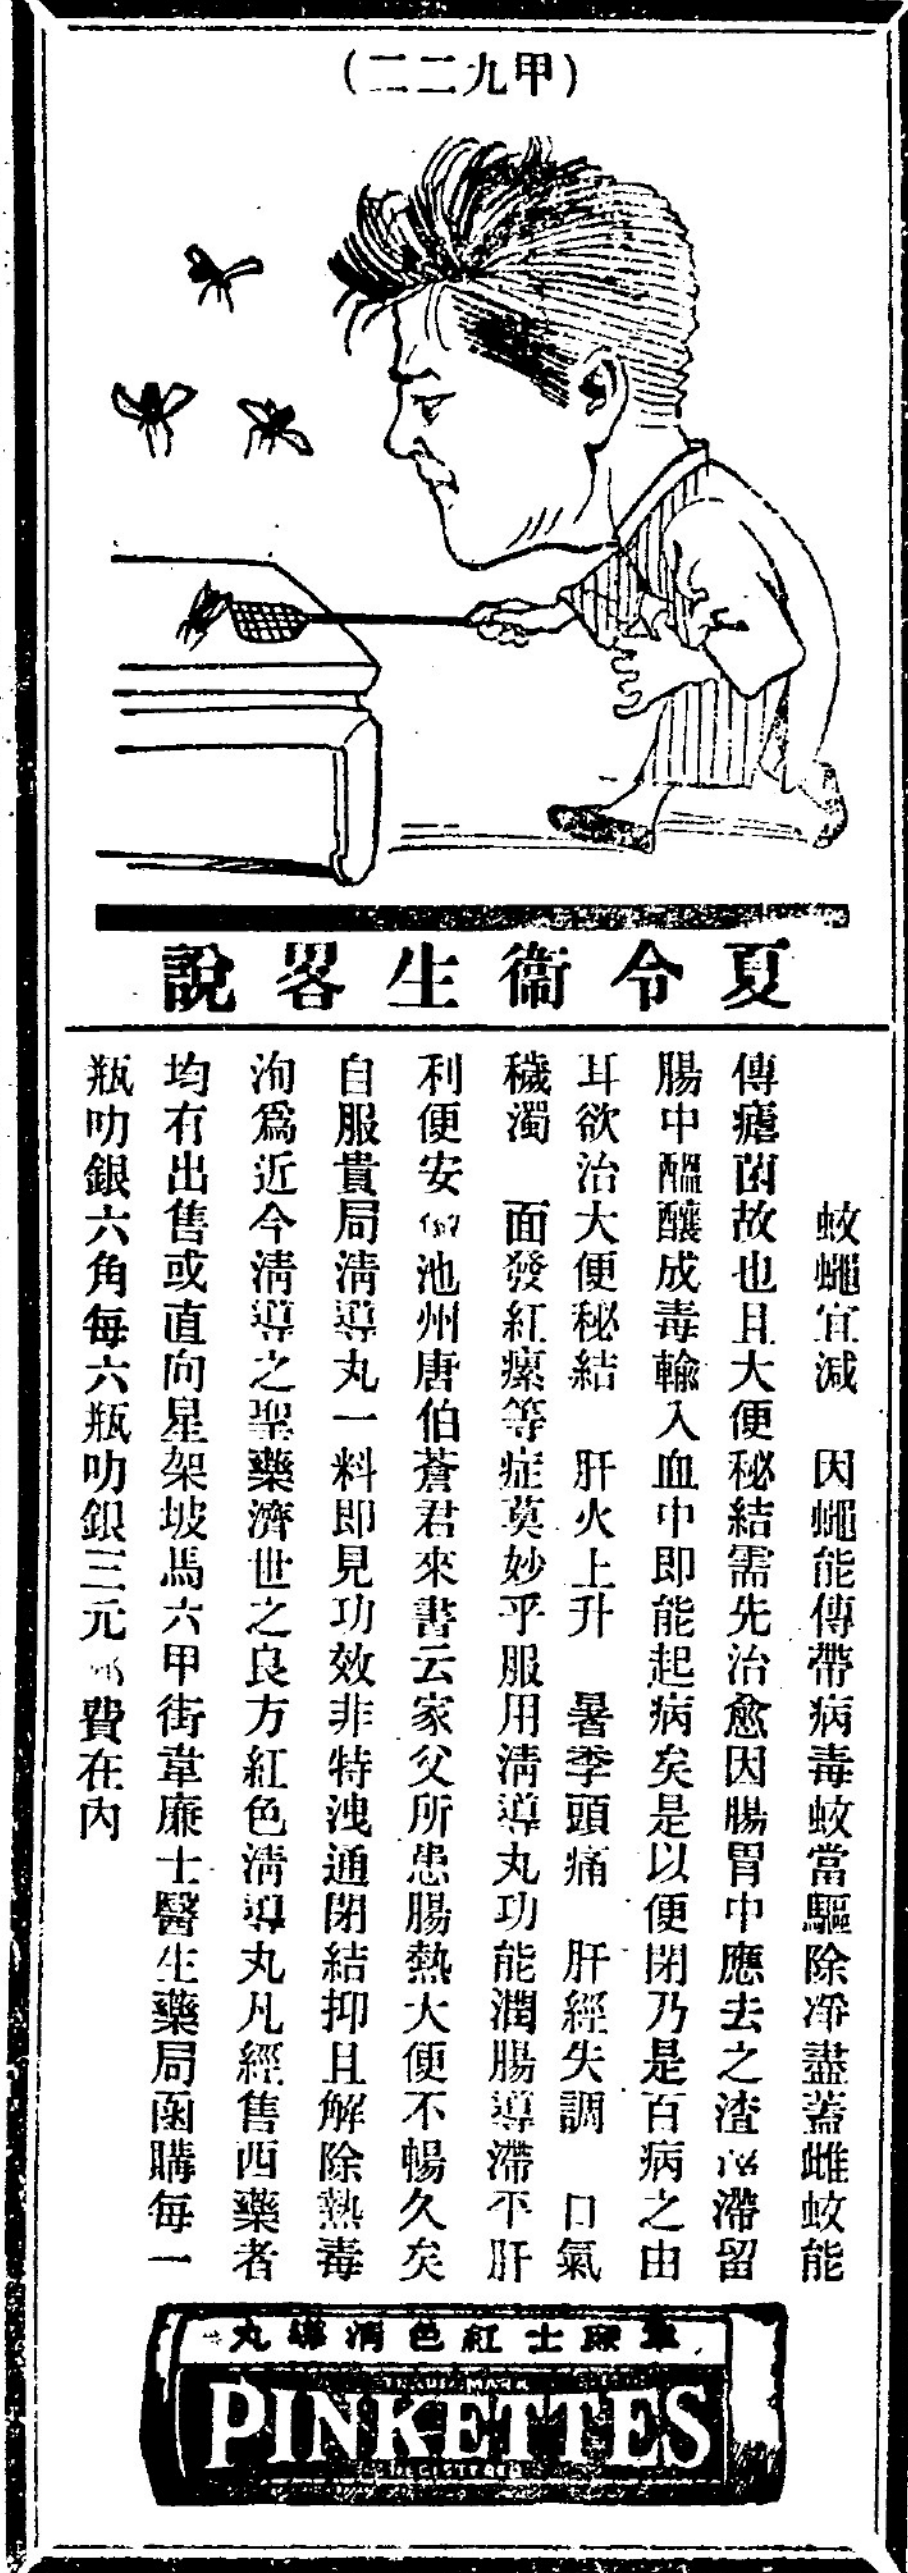 (甲九二二)
夏令衞生畧說
蚊蠅宜減　因蠅能傳帶病毒蚊當驅除淨盡蓋雌蚊能
傳瘧菌故也且大便秘結需先治愈因腸胃中應去之渣滯留
腸中醞釀成毒輸入血中即能起病矣是以便閉乃是百病之由
耳欲治大便秘結　肝火上升　暑季頭痛　肝經失調　口氣
穢濁　面發紅瘰等症莫妙乎服用淸導丸功能潤腸導滯平肝
利便安池州唐伯蒼君來書云家父所患腸熱大便不暢久矣
自服貴局淸導丸一料即見功效非特洩通閉結抑且解除熱毒
洵爲近今淸導之聖藥濟世之良方紅色淸導丸凡經售西藥者
均有出售或直向星架坡馬六甲街韋廉士醫生藥局函購每一
瓶叻銀六角每六瓶叻銀三元費在內
韋廉士紅色淸導丸
TRADE MARK
PINKETTES
REGISTERED